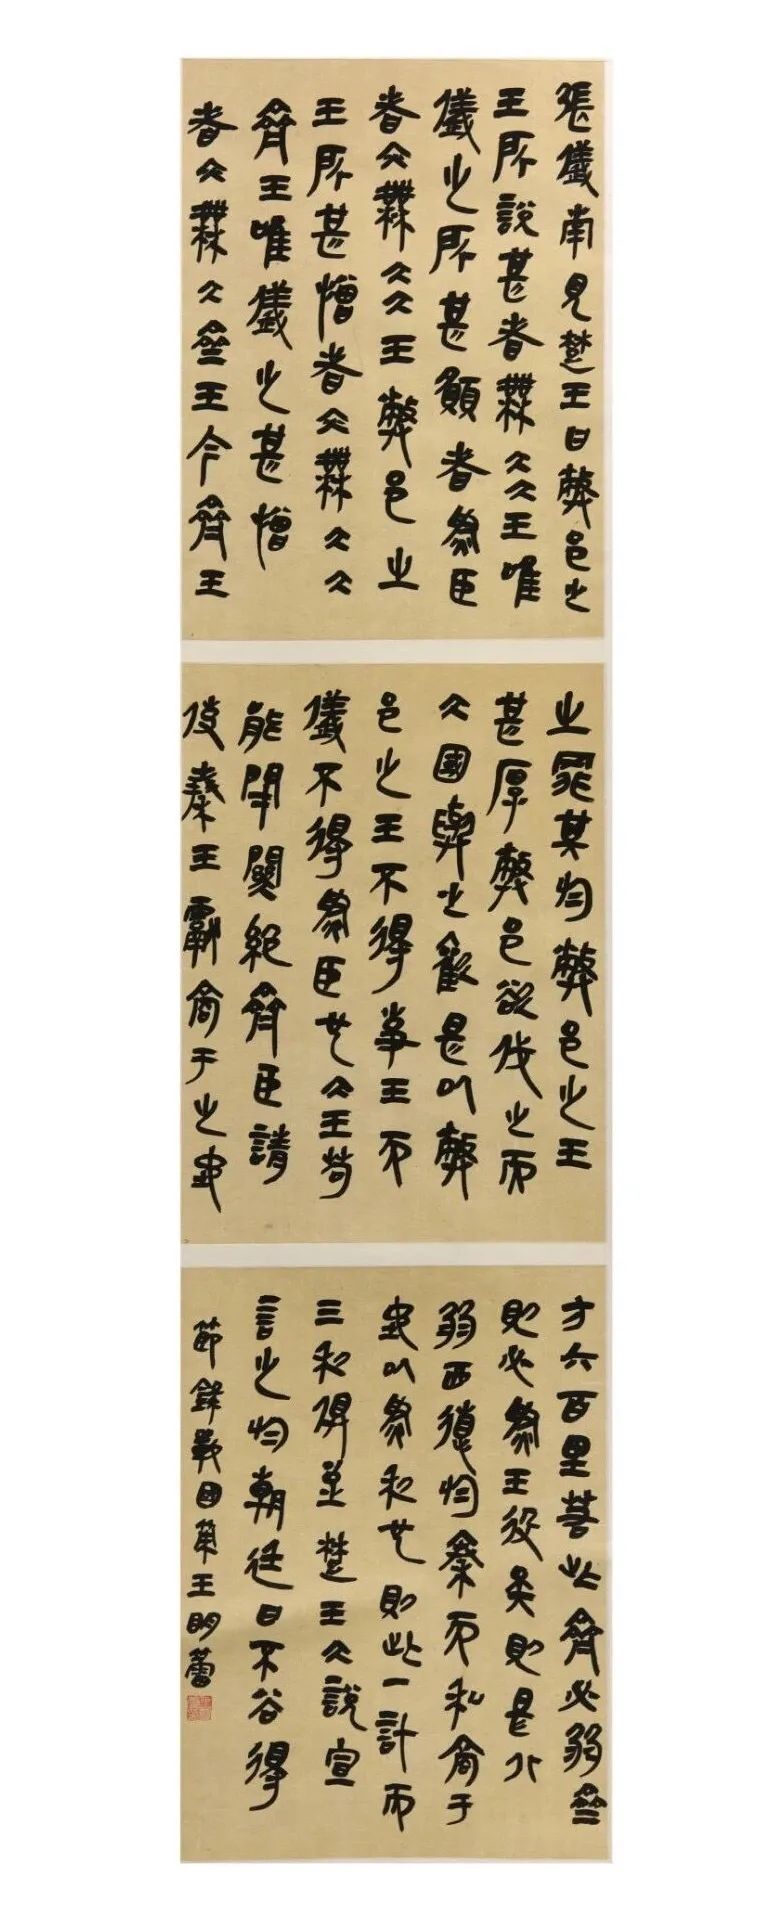 張儀南見楚王曰弊邑之
王所說甚者無大大王唯
儀之所甚願者為臣
者亦無大大王弊邑之
王所甚憎者亦無大大
齊王唯儀之甚憎
者亦無大齊王今齊王
之罪其於弊邑之王
甚厚弊邑欲伐之而
大國與之歡是以弊
邑之王不得事王而
儀不得為臣也大王苟
能閉關絕齊臣請
使秦王獻商于之地
方六百里若此齊必弱齊
則必為王役矣則是北
弱西德於秦而私商于
地以為利也則此一計而
三利俱至楚王大說宣
言之於朝廷曰不谷得
節錄戰國策王明蕾